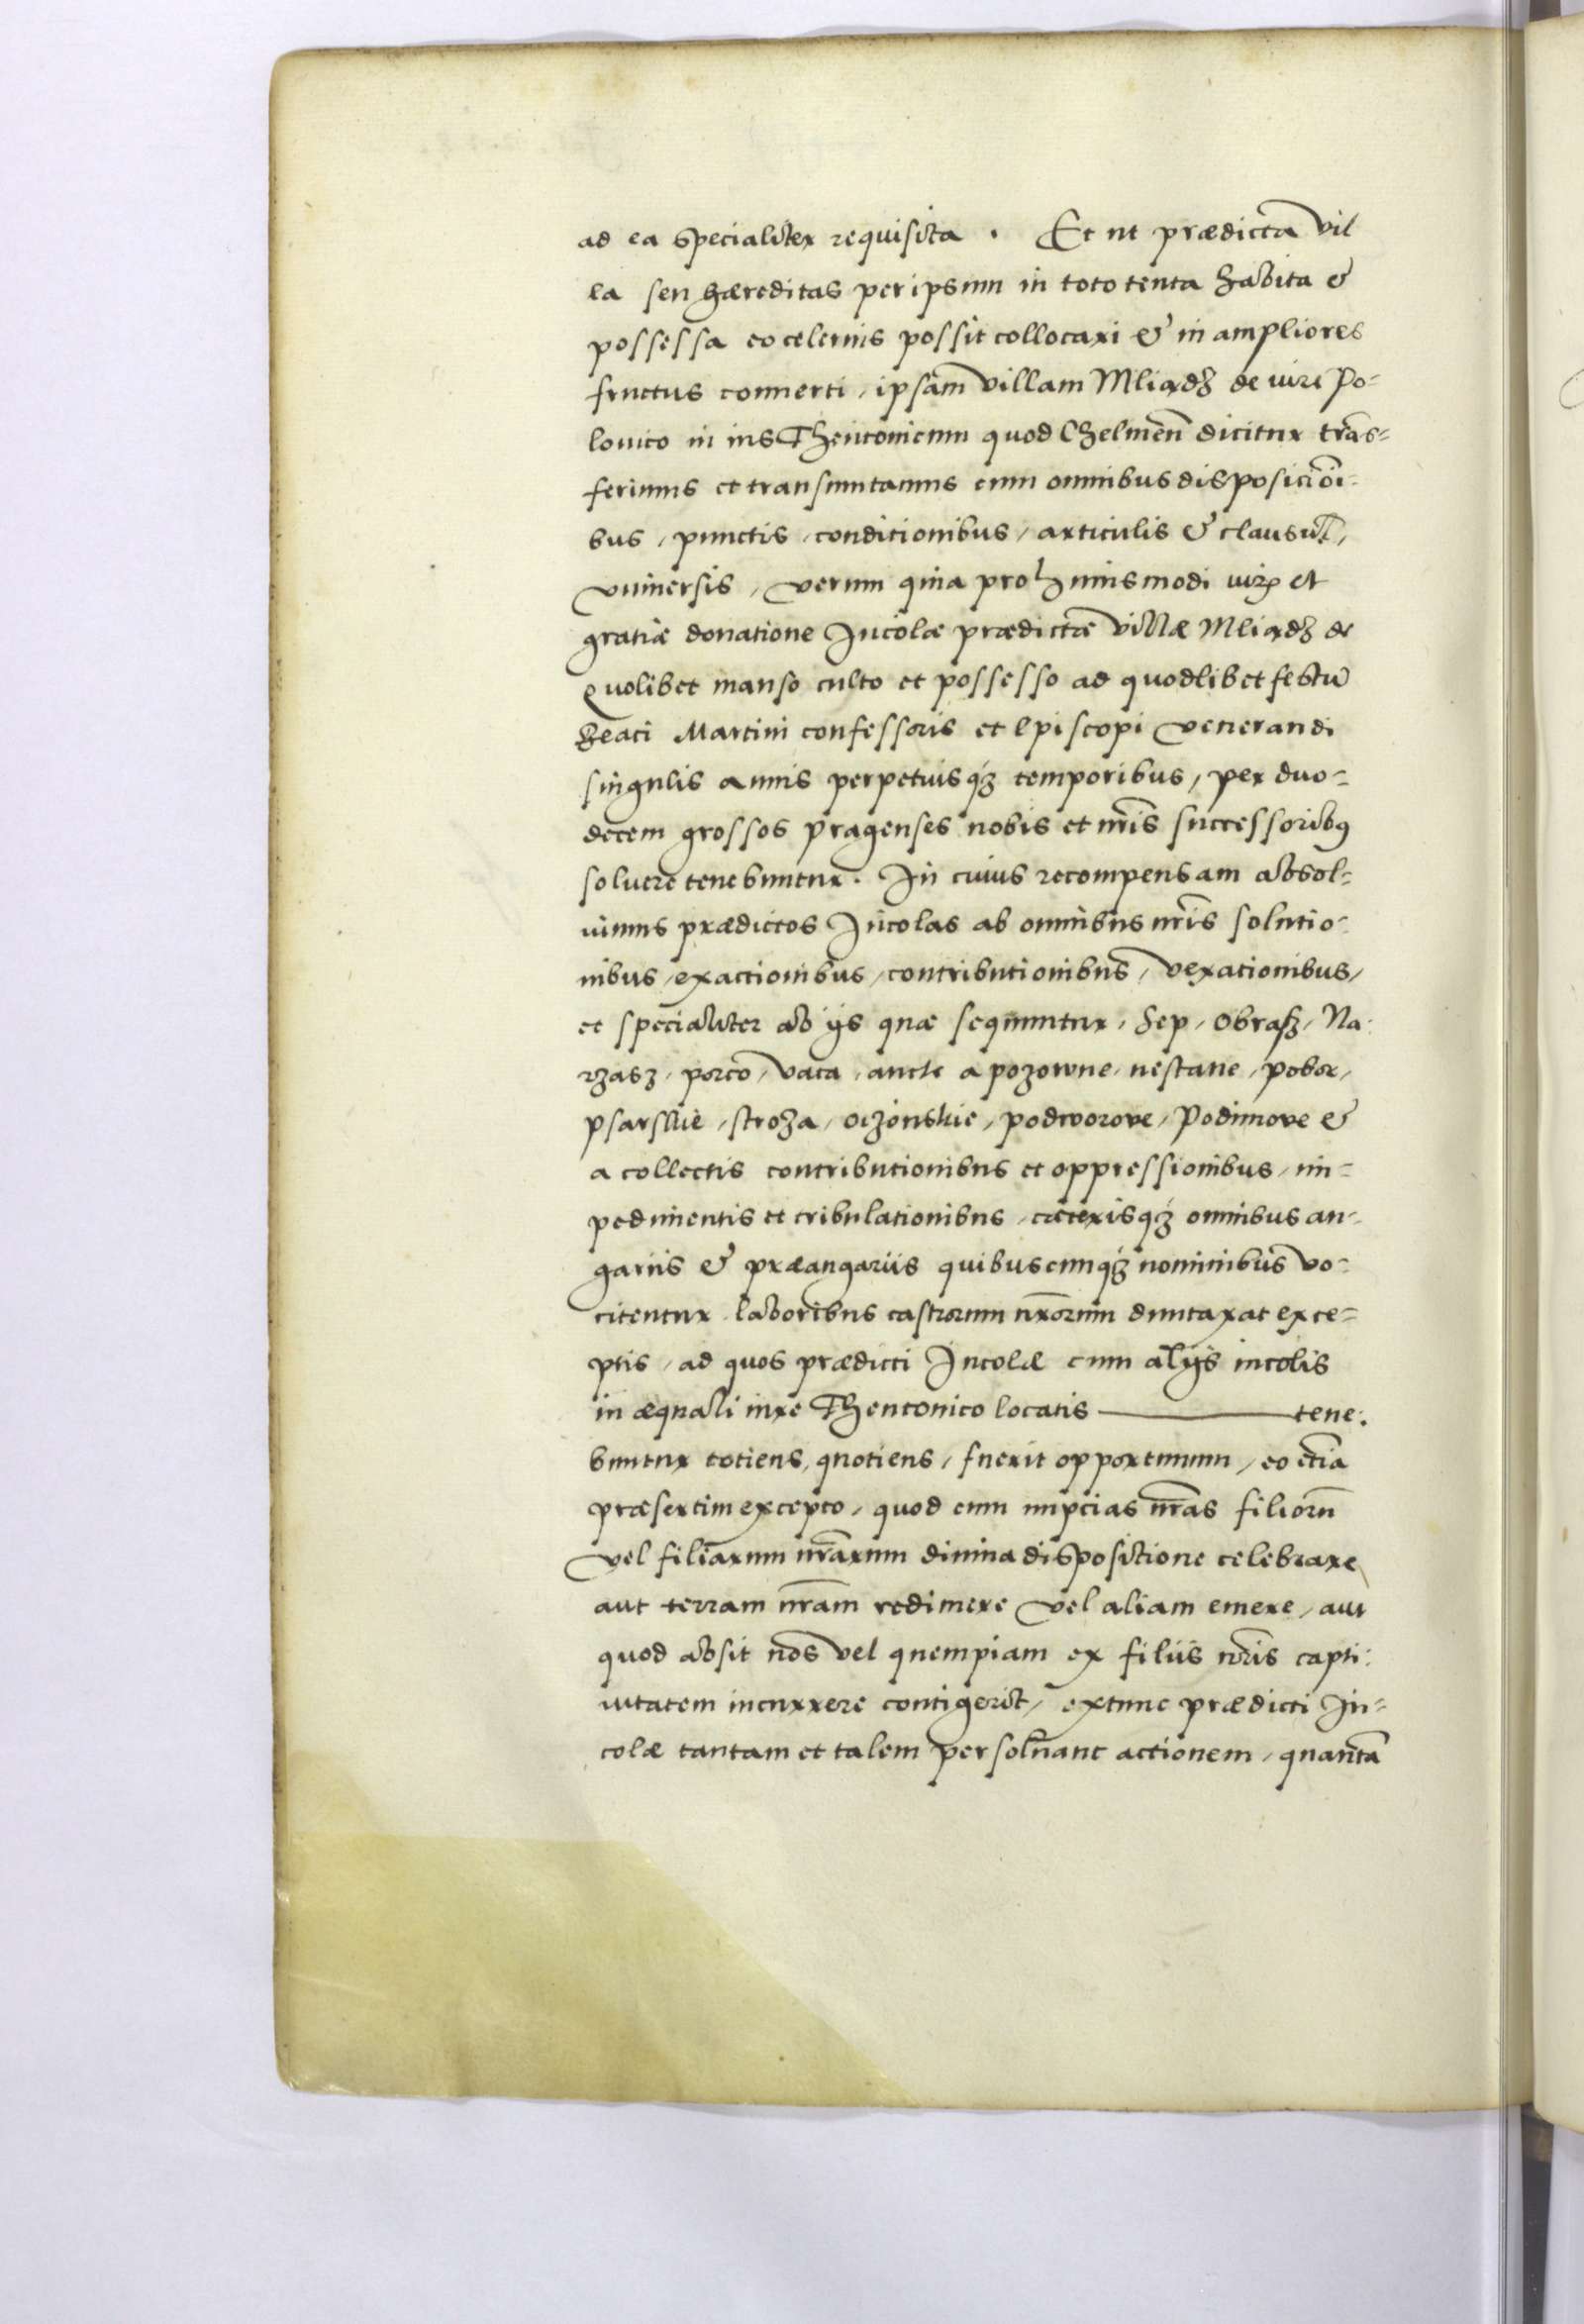 ad ea specialiter requisita . Et ut prædicta vil
la seu hæreditas per ipsum in toto tenta habita &
possessa eo celerius possit collocari & in ampliores
fructus conuerti, ipsam villam Mliądz de iure Po=
lonico in ius Theutonicum quod Chelmen̄ dicitur trās=
ferimus et transmutamus cum omnibus disposiciōi=
bus, punctis, conditionibus, articulis & clausul̄,
vniuersis, verum quia pro huiusmodi iuris et
gratiæ donatione Incolæ prædictæ villæ Mliądz de
quolibet manso culto et possesso ad quodlibet festū
Beati Martini confessoris et Episcopi venerandi
singulis annis perpetuisqꝫ temporibus, per duo=
decem grossos pragenses nobis et nr̄is successoribꝰ
soluere tenebuntur. In cuius recompensam absol=
uimus prædictos Incolas ab omnibus nr̄is solutio=
nibus, exactionibus, contributionibus, vexationibus,
et specialiter ab ijs quæ sequuntur, Sep, Obrasz, Na=
rzasz, porco, vaca, ancte a pozowne, nestane, pobor,
psarskie, stroza, oczonskie, podworove, Podimove &
a collectis contributionibus et oppressionibus, im=
pedimentis et tribulationibus, cæterisqꝫ omnibus an=
gariis & præangariis quibuscunqꝫ nominibus vo=
citentur laboribus castrorum nr̄orum duntaxat exce=
ptis, ad quos prædicti Incolæ cum alijs incolis
in æquali iure Theutonico locatis — tene:
buntur totiens, quotiens, fuerit opportunum, eo etiā
præsertim excepto, quod cum nupcias nr̄as filiorū
vel filiarum nr̄arum diuina dispositione celebrare,
aut terram nr̄am redimere vel aliam emere, aut
quod absit nos vel quempiam ex filiis nr̄is capti:
uitatem incurrere contigerit, extunc prædicti In=
colæ tantam et talem persoluant actionem, quantā